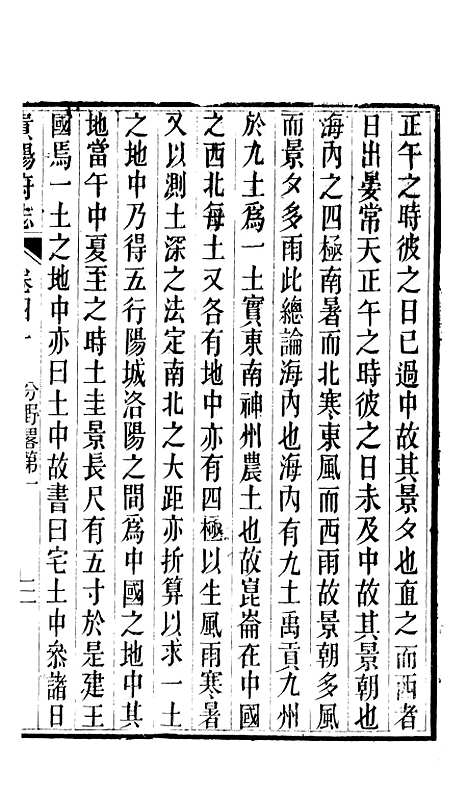 正午之時彼之日已過中故其景夕也直之而西者
日出晏常天正午之時彼之日未及中故其景朝也
海內之四極南暑而北寒東風而西雨故景朝多風
而景夕多雨此總論海內也海內有九土禹貢九州
於九土爲一土實東南神州農土也故崑崙在中國
之西北每土又各有地中亦有四極以生風雨寒暑
又以測土深之法定南北之大距亦折算以求一土
之地中乃得五行陽城洛陽之間爲中國之地中其
地當午中夏至之時土圭景長尺有五寸於是建王
國焉一土之地中亦曰土中故書曰宅土中叅諸日
貴陽府志
卷四十
分野畧第一
二